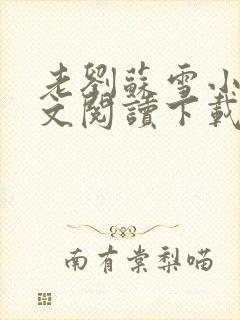 老劉蘇雪小
文閱讀下載
南有棠梨喵